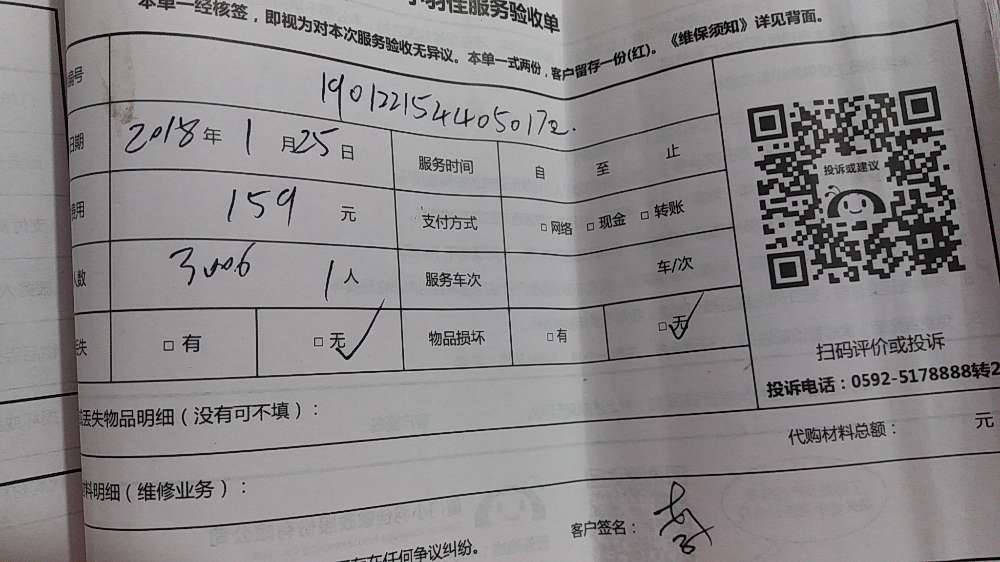 羽佳服务验收单
本单一经核签，即视为对本次服务验收无异议。本单一式两份，客户留存一份(红)。《维保须知》详见背面。
编号
日期 2018年 1月25日 服务时间 自 至 止
费用 159 元 支付方式 □网络 □现金 □转账
人数 3006 1人 服务车次 车/次
丢失 □有 □无 物品损坏 □有 □无
投诉或建议
扫码评价或投诉
投诉电话：0592-5178888转2
丢失物品明细（没有可不填）：
代购材料总额： 元
料明细（维修业务）：
客户签名：
在任何争议纠纷。